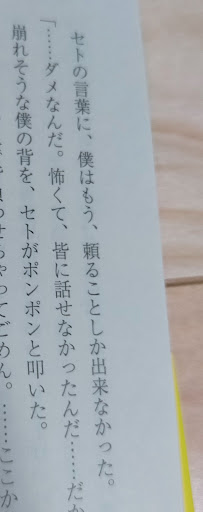 セトの言葉に、僕はもう、頼ることしか出来なかった。
「……ダメなんだ。怖くて、皆に話せなかったんだ……だか
崩れそうな僕の背を、セトがポンポンと叩いた。
わせちゃってごめん。……ここか